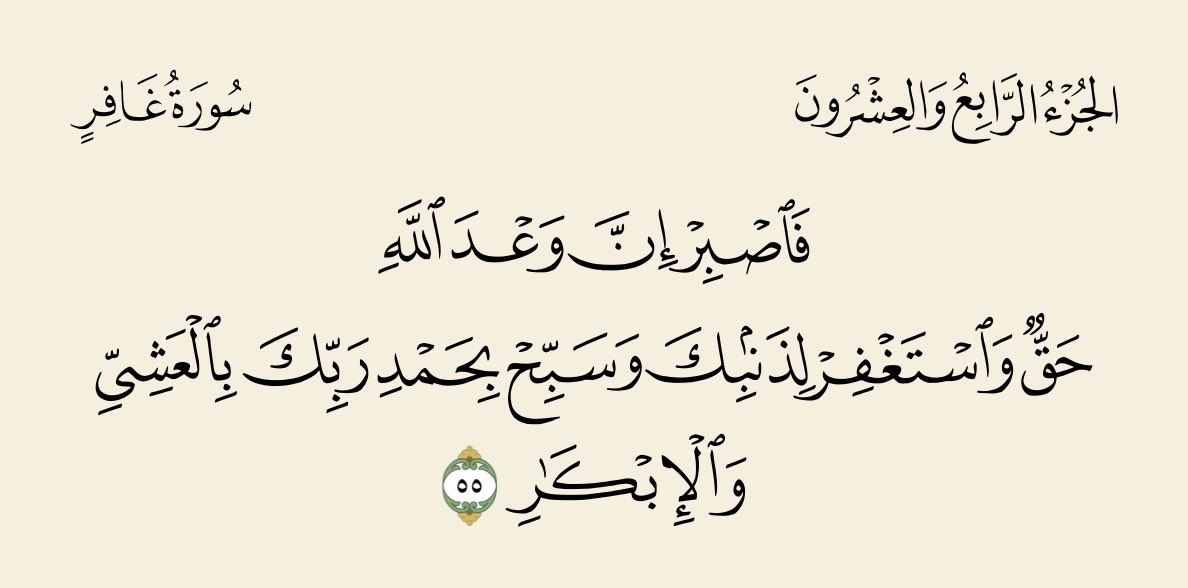 الجُزْءُ الرَّابِعُ وَالعِشْرُونَ
سُورَةُ غَافِرٍ
فَٱصۡبِرۡ إِنَّ وَعۡدَ ٱللَّهِ
حَقّٞ وَٱسۡتَغۡفِرۡ لِذَنۢبِكَ وَسَبِّحۡ بِحَمۡدِ رَبِّكَ بِٱلۡعَشِيِّ
وَٱلۡإِبۡكَٰرِ ٥٥